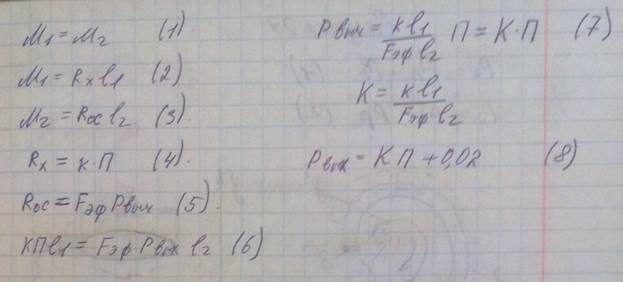 M₁ = M₂ (1)
M₁ = Rxl₁ (2)
M₂ = Rосl₂ (3).
Rx = к·П (4).
Rос = FэфPвых (5).
КПl₁ = FэфPвых l₂ (6)
Pвых = кl₁/Fэфl₂ П = К·П (7)
К = кl₁/Fэфl₂
Pвых = КП + 0,02 (8)